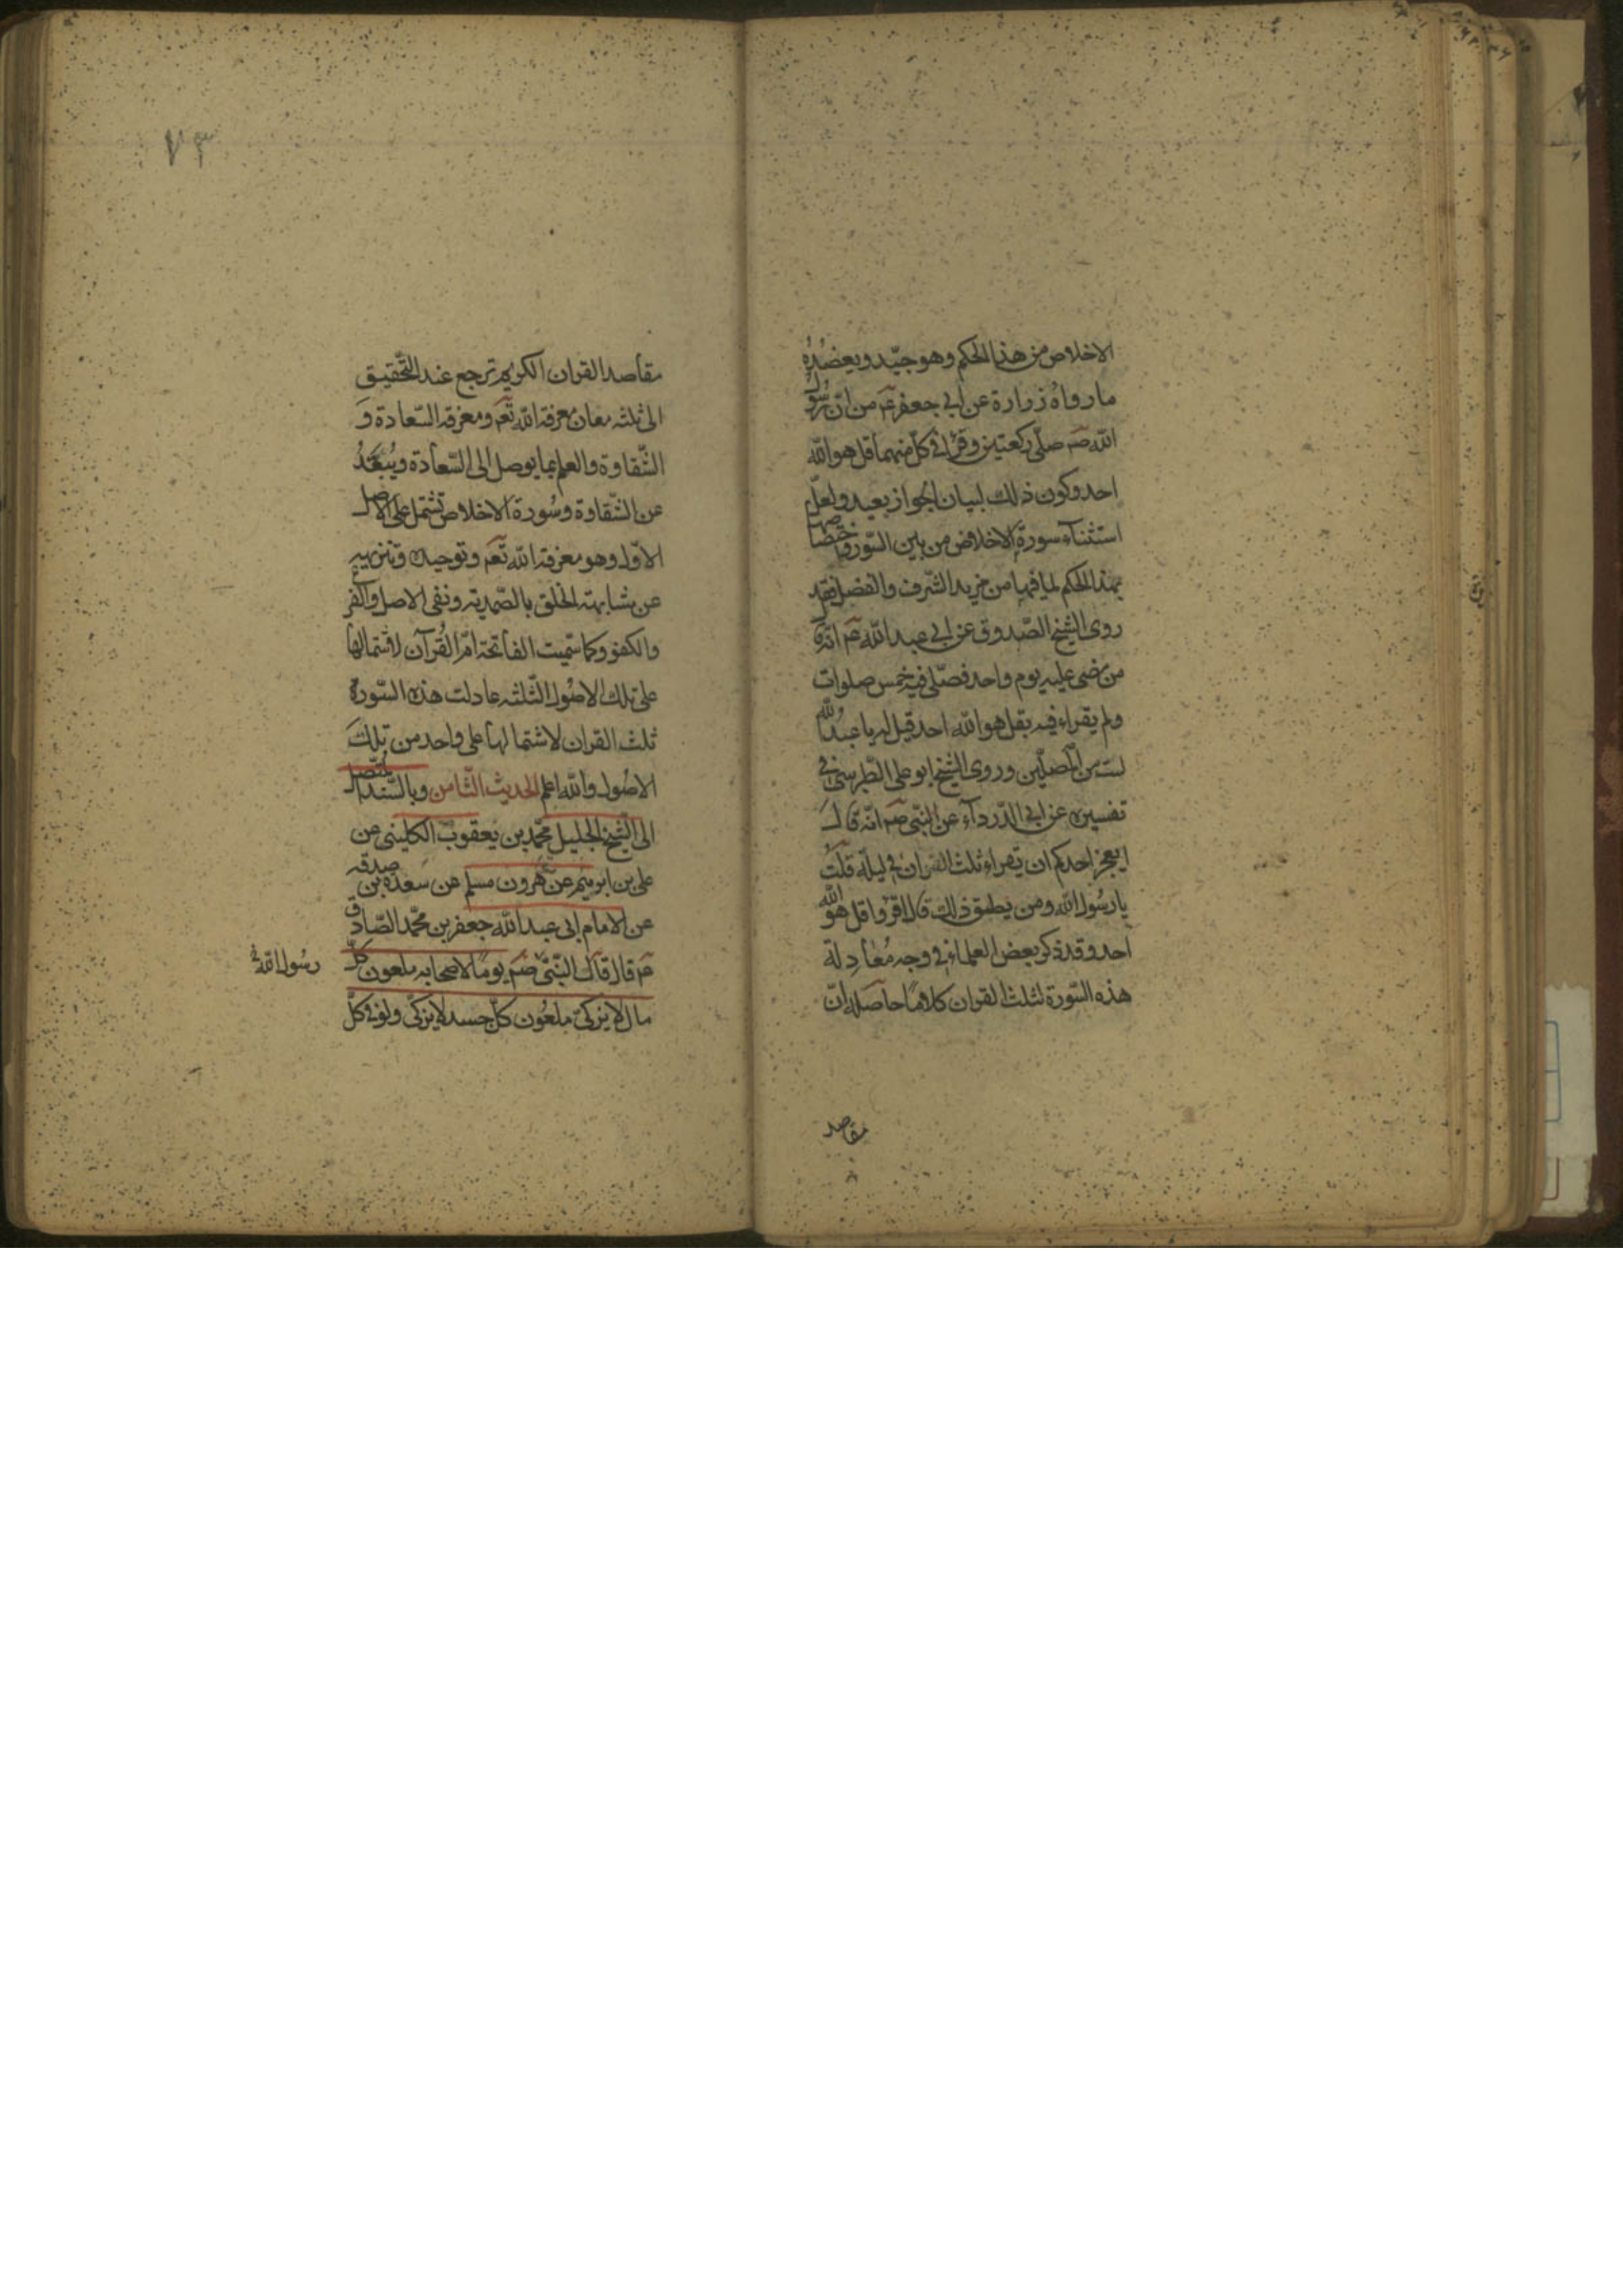 الاخلاص من هذا الحكم وهو جيّد ويعضُدُهُ
ما رواهُ زرارة عن ابى جعفر عم من انّ رسُول
الله صم صلّى ركعتين وقرأ فى كلّ منهما قل هو الله
احد وكون ذلك لبيان الجواز بعيد ولعلّ
استثناء سورة الاخلاص من بين السّور واختصاصها
بهذا الحكم لما فيها من مزيد الشّرف والفضل فقد
روى الشيخ الصّدوق عن ابى عبد الله عم انّه قا
من مضى عليه يوم واحد فصلّى فيه خمس صلوات
ولم يقراء فيه بقل هو الله احد قيل له يا عبد الله
لست من المصلّين وروى الشيخ ابو على الطّبرسىّ فى
تفسيره عن ابى الدّرداء عن النّبى صم انّه قال
ايعجز احدكم ان يقراء ثلث القران فى ليلة قلت
يا رسُول الله ومن يطيق ذلك قال اقرؤا قل هو الله
احد وقد ذكر بعض العلماء فى وجه مُعادلة
هذه السّورة لثلث القران كلامًا حاصله انّ
مقاصد
٧٣
مقاصد القران الكريم ترجع عند التّحقيق
الى ثلثه معان معرفة الله تعم ومعرفة السّعادة وَ
الشّقاوة والعلم بما يوصل الى السّعادة ويُبعّدُ
عن الشّقاوة وسُورة الاخلاص تشتمل على الاصل
الاوّل وهو معرفة الله تعم وتوحيده وتنزيهه
عن مشابهته الخلق بالصّمديّه ونفى الاصل والفرع
والكفو وكما سمّيت الفاتحة امّ القُرآن لاشتمالها
على تلك الاصُول الثّلثه عادلت هذه السّورة
ثلث القران لاشتمالها على واحد من تلكَ
الاصُول والله اعلم الحديث الثّامن وبالسّند المتّصل
الى الشّيخ الجليل محمّد بن يعقوب الكلينى عن
على بن ابرهيم عن هرون مسلم عن مسعدة بن صدقه
عن الامام ابى عبد الله جعفر بن محمّد الصّادق
عم قال قال النّبىّ صم يومًا لاصحابه ملعون كلّ
رسُول الله
مال لا يزكىّ ملعُون كلّ جسد لا يزكّى ولو فى كلّ